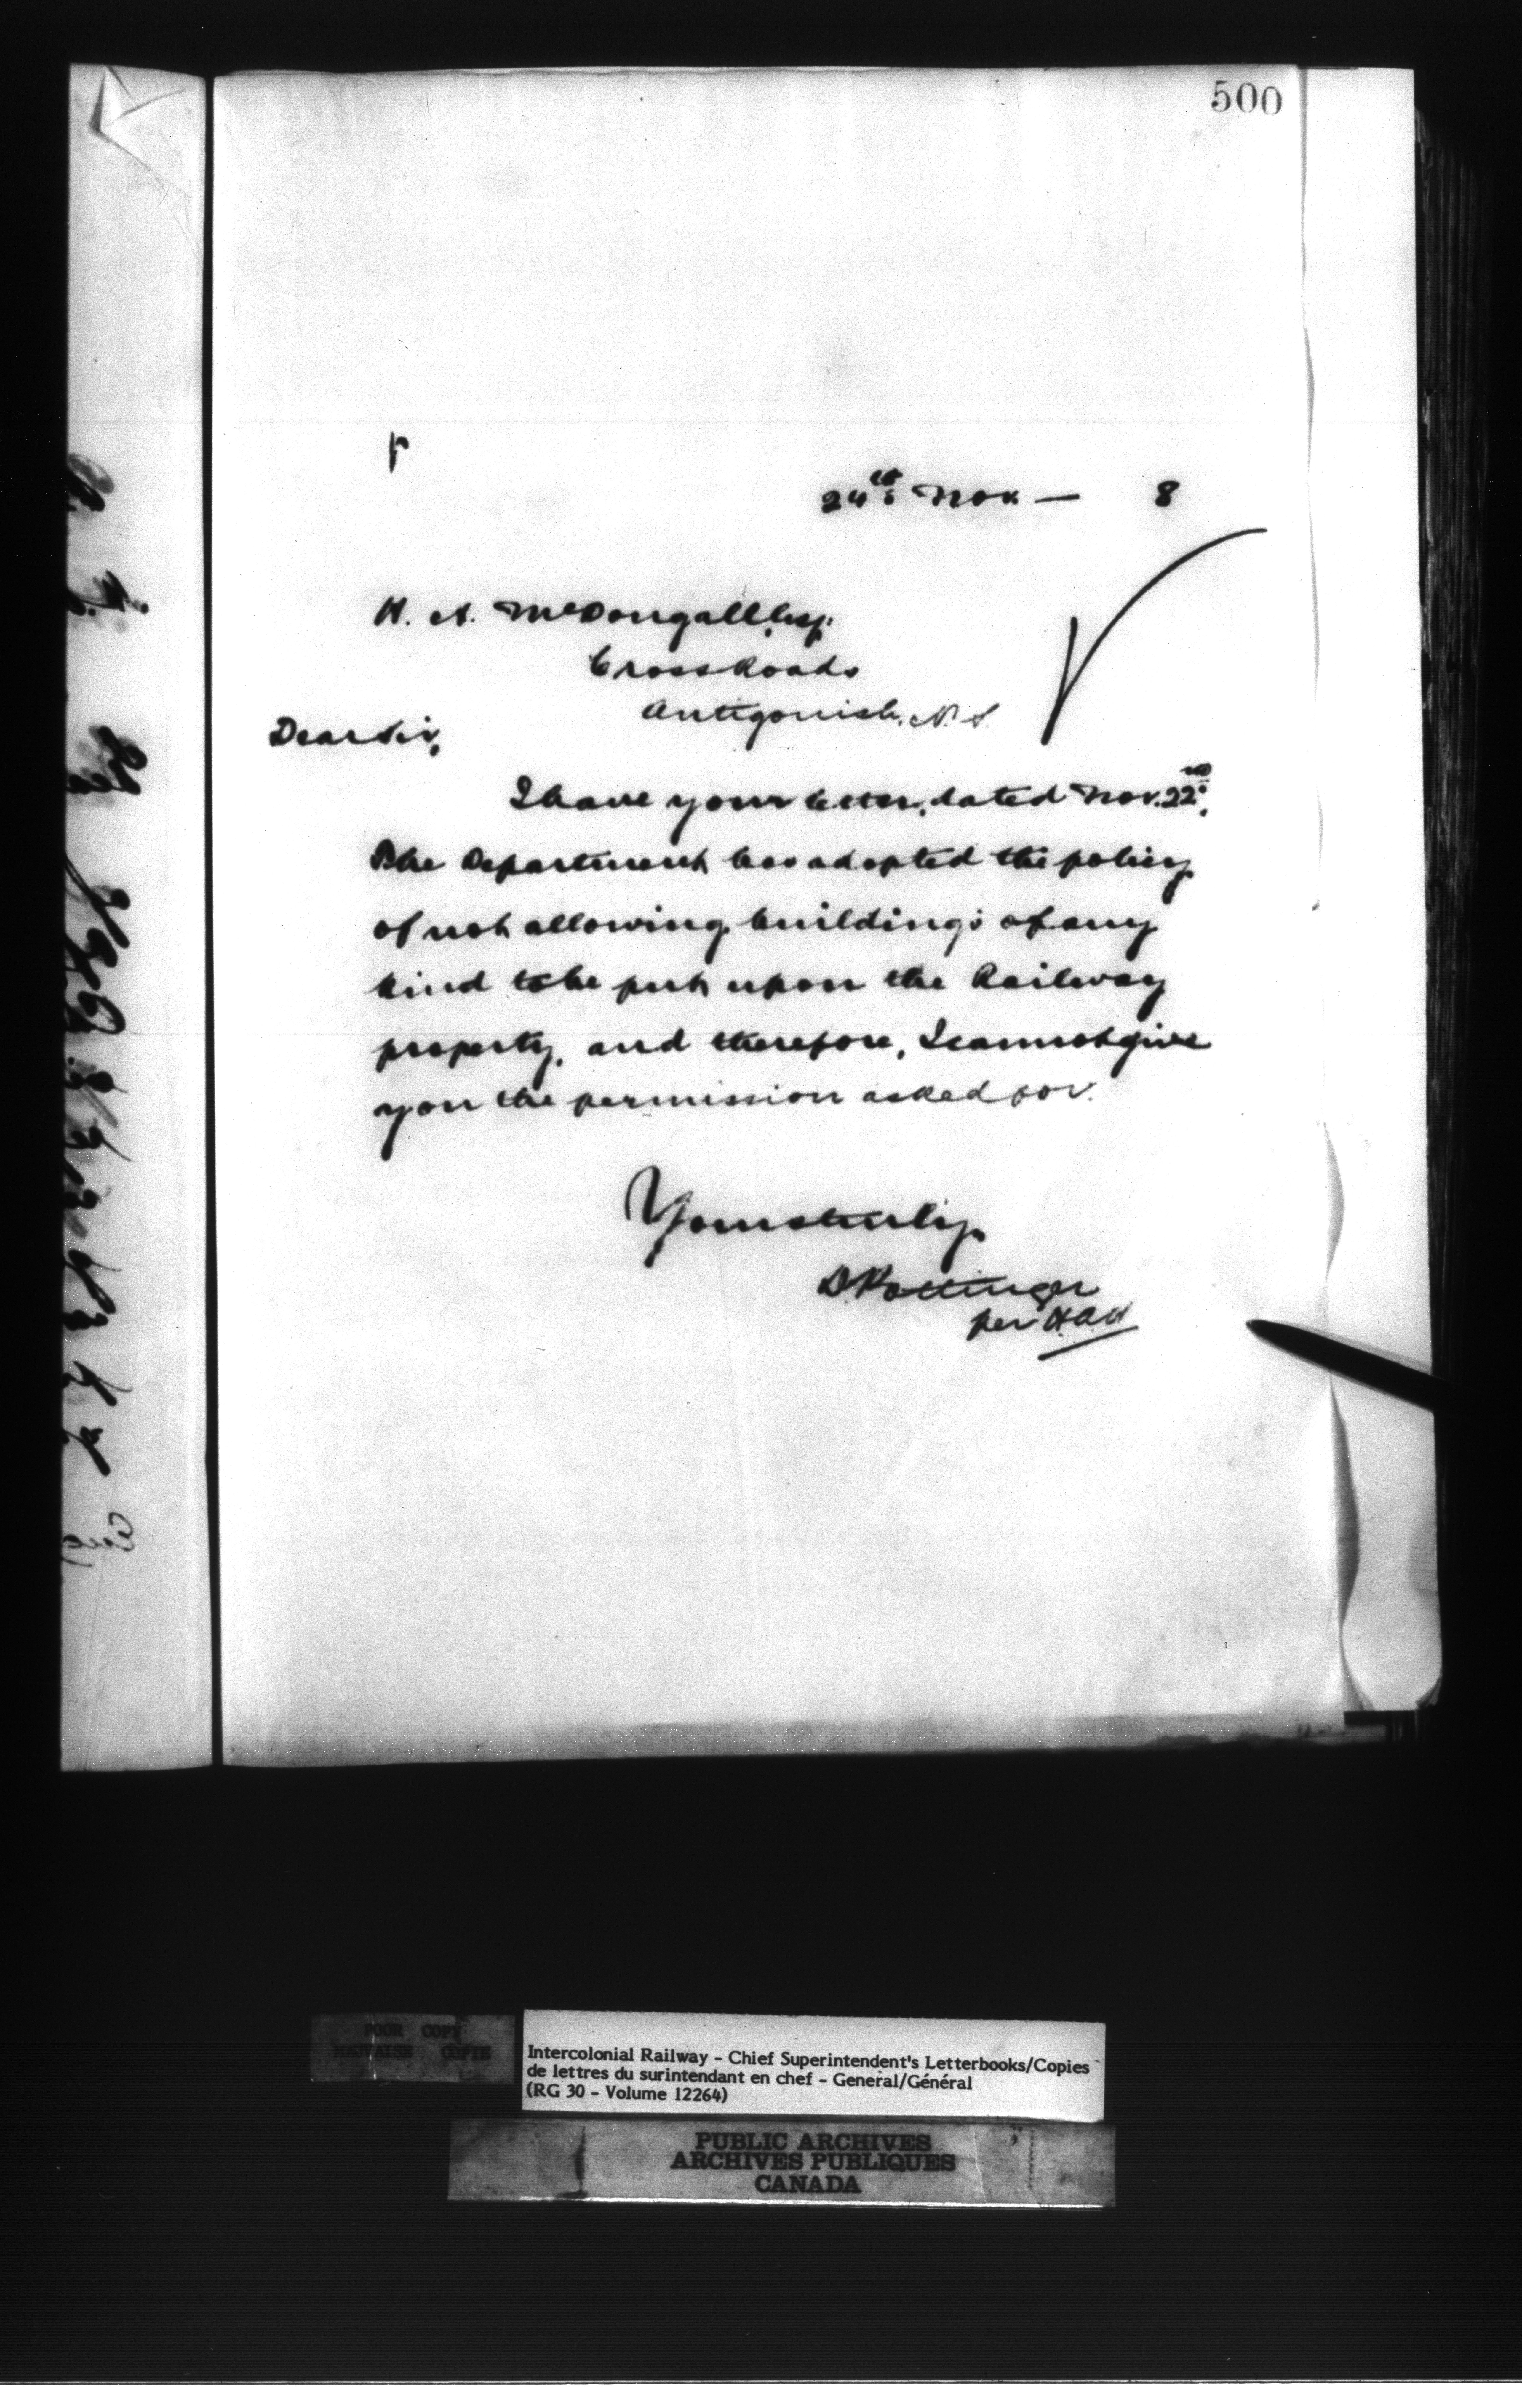 500
24th Nov — 8
H. A. McDougall Esq.
Cross Roads
Antigonish, N.S.
Dear Sir,
I have your letter, dated Nov. 22nd.
The Department has adopted the policy
of not allowing buildings of any
kind to be put upon the Railway
property, and therefore, I cannot give
you the permission asked for.
Yours truly,
D. Pottinger
per H.A.W
POOR COPY
MAUVAISE COPIE
Intercolonial Railway - Chief Superintendent's Letterbooks/Copies
de lettres du surintendant en chef - General/Général
(RG 30 - Volume 12264)
PUBLIC ARCHIVES
ARCHIVES PUBLIQUES
CANADA